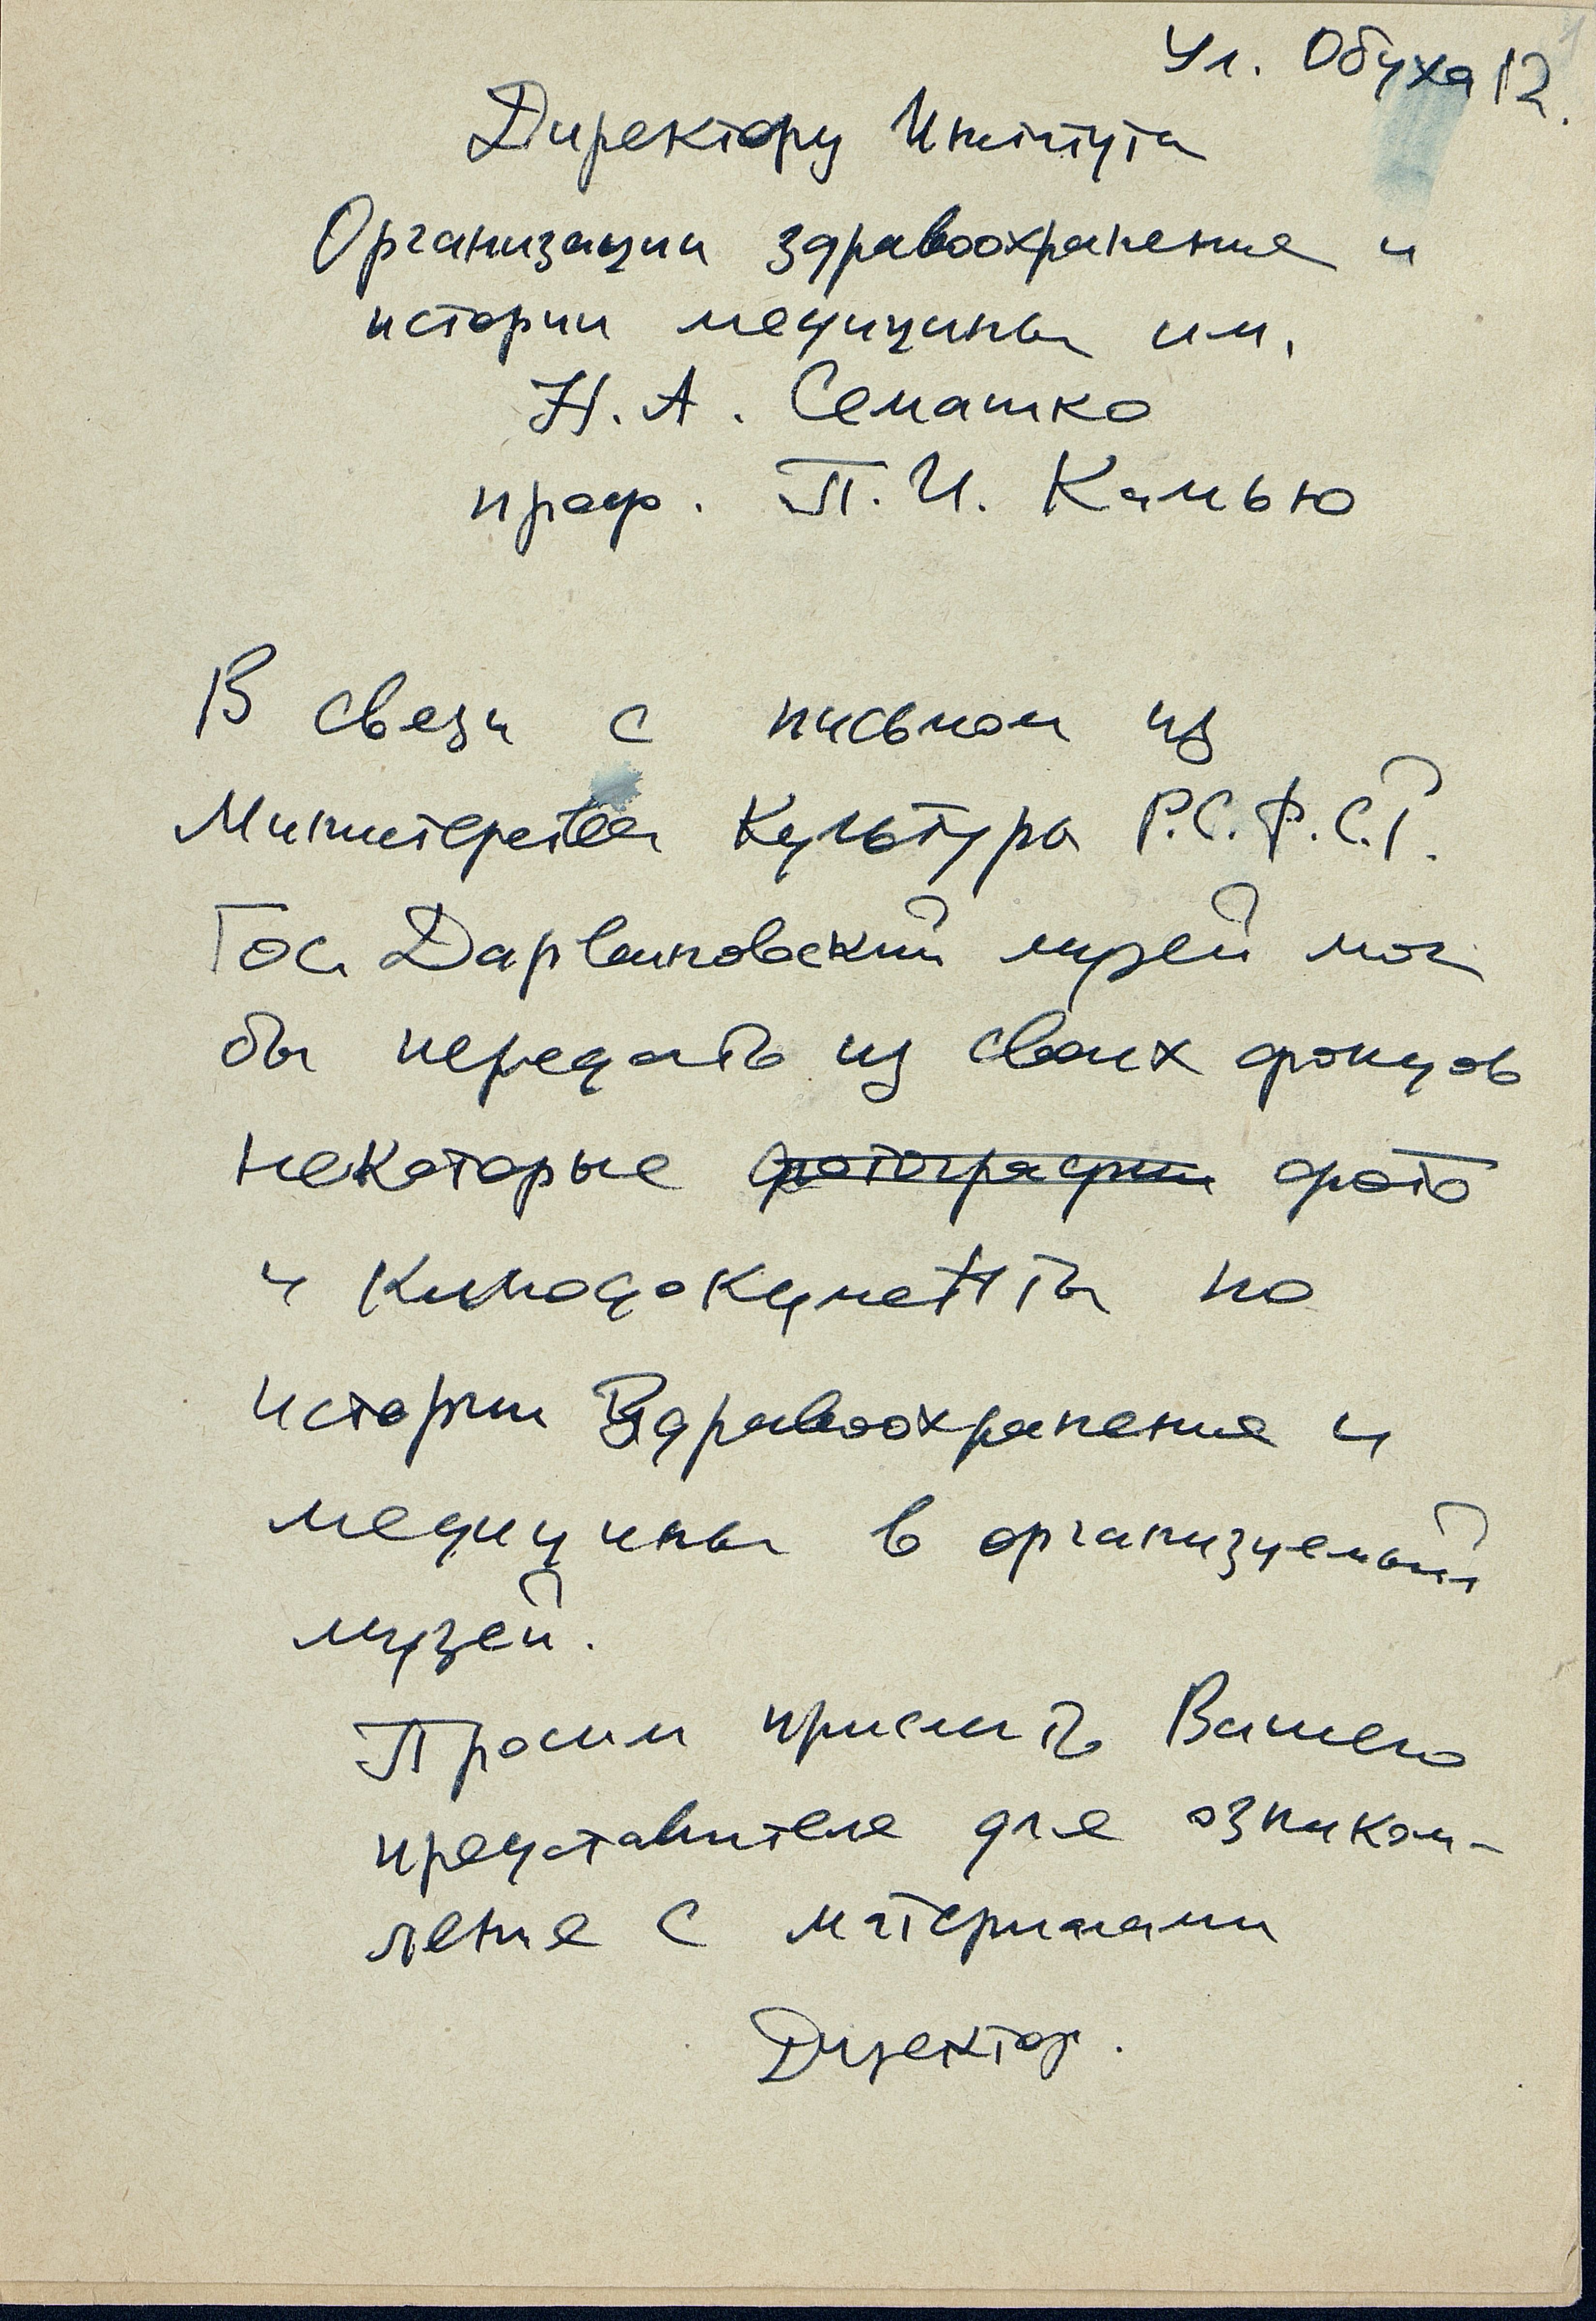 Ул. Обуха 12.
Директору Института
Организации здравоохранения и
истории медицины им.
Н. А. Семашко
проф. П. И. Калью
В связи с письмом из
Министерства Культуры Р.С.Ф.С.Р.
Гос. Дарвиновский музей мог
бы передать из своих фондов
некоторые фотографии фото
и кинодокументы по
истории Здравоохранения и
медицины в организуемый
музей.
Просим прислать Вашего
представителя для ознаком-
ления с материалами
Директор.